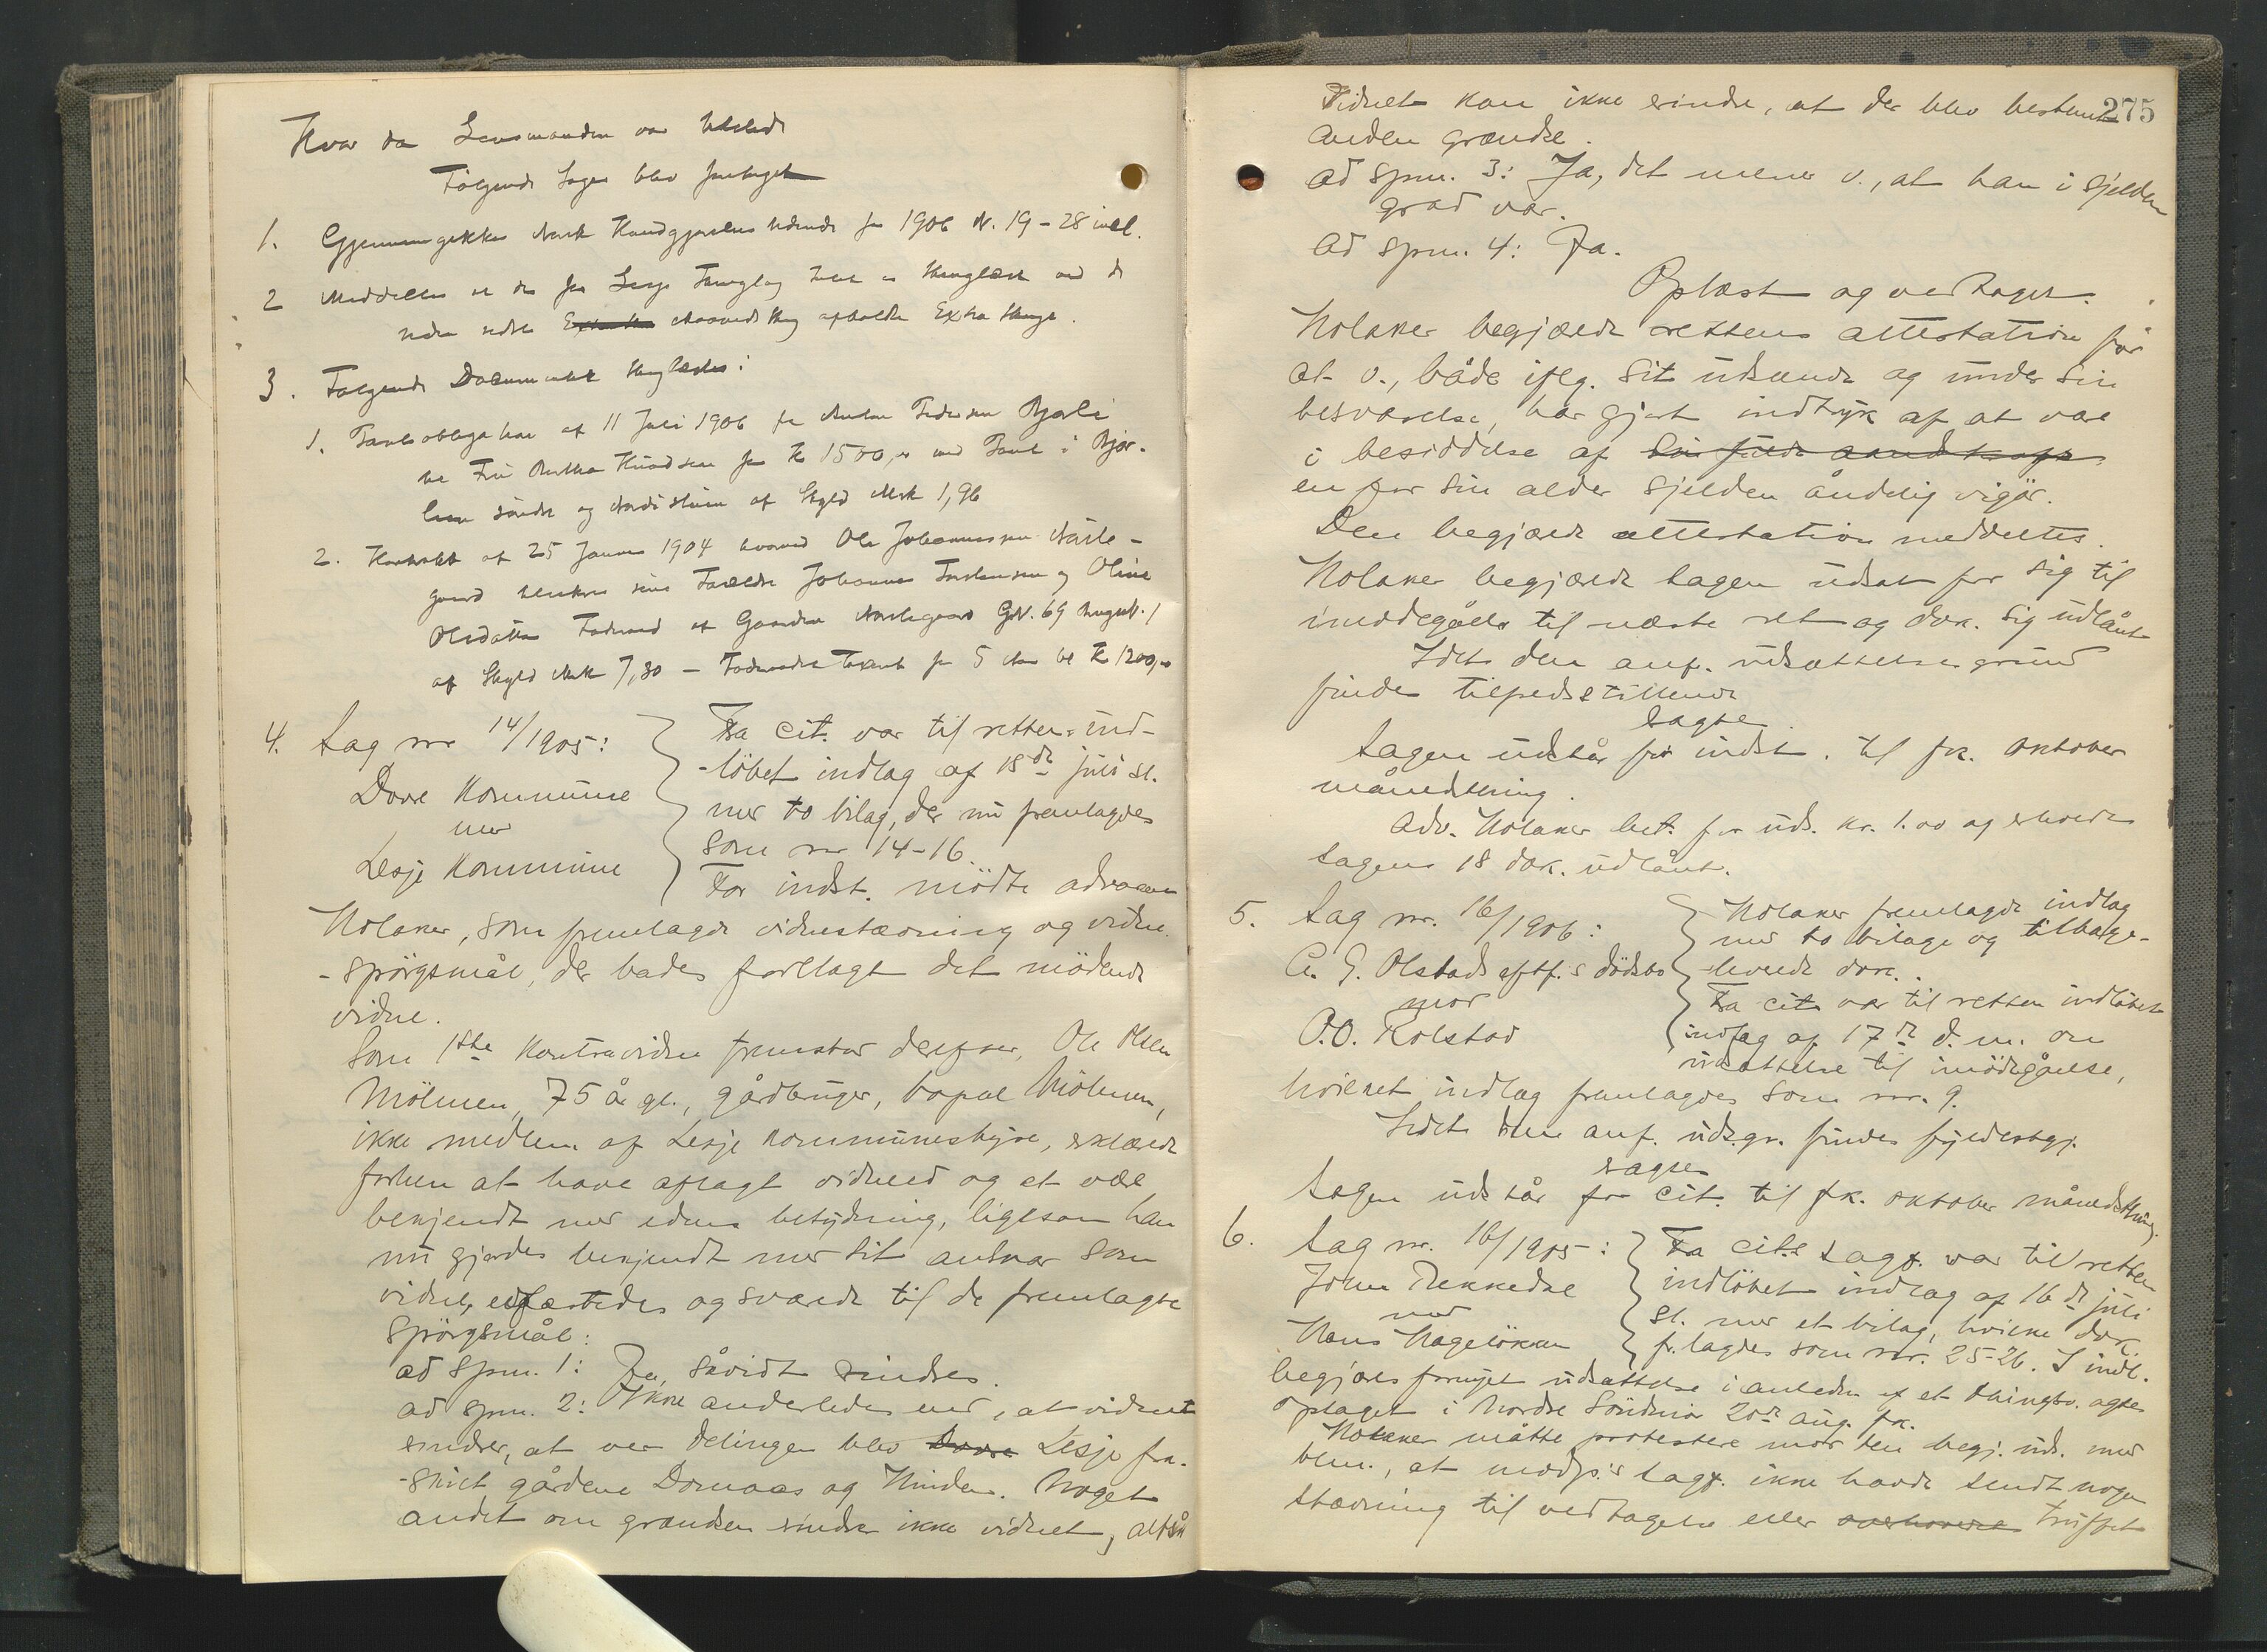 Hvor da Lensmanden var tilstede
Følgende Sager blev foretaget
1. Gjennemgikkes Norsk Kundgjørelses tidende for 1906 N. 19-28 incl.
2 Meddeltes at der for Lesje Thinglag intet er thinglæst ved de
siden sidste Maanedsthing afholdte Extrathinge.
3. Følgende Documenter thinglæstes:
1. Panteobligation af 11 Juli 1906 fra Pedersen Bjorli
til Fru Knudsen for Kr 1500,00 med Pant i Bjor-
lien søndre og af Skyld Mrk 1,96
2. Kontrakt af 25 Januar 1904 hvorved Ole Johannessen Norste-
gaard tilsikrer sine Forældre Johannes og Oline
Olsdatter Føderaad af Gaarden GN. 69 brugsN. 1
af Skyld Mrk 7,30 – Føderaadet Taxeret for 5 Aar til Kr 1200,00
4. Sag nr 14/1905:
Dovre Kommune
mod
Lesje Kommune
Fra cit. var til retten ind-
-löbet indlag af 18de juli sl.
med to bilag, der nu fremlagdes
som nr 14-16.
For indst. mödte advocat
Holaker, som fremlagde vidnestævning og vidne-
-spörgsmål, der bades forelagt det mödende
vidne.
Som 1ste Kontravidne fremstod derefter, Ole Olsen
Mölmen, 75 år gl., gårdbruger, bopæl Mölmen,
ikke medlem af Lesje kommunestyre, erklærede
forhen at have aflagt vidneed og at være
bekjendt med edens betydning, ligesom han
nu gjordes bekjendt med sit ansvar som
vidne, edfæstedes og svarede til de fremlagte
spörgsmål:
ad spm. 1: Ja, såvidt erindres.
ad spm. 2: Ikke anderledes end, at vidnet
erindrer, at ved delingen blev Dovre Lesje fra-
-skilt gårdene Domaas og Hinden. Noget
andet om grændsen erindrer ikke vidnet, altså
275
Vidnet kan ikke erindre, at der blev bestemt
anden grændse.
ad spm. 3: Ja, det mener v., at han i sjelden
grad var.
ad spm. 4: Ja.
Oplæst og vedtaget.
Holaker begjærede rettens attestation for
at v., både iflg. sit udseende og under sin
besvarelse, har gjort indtryk af at være
i besiddelse af sin fulde aandskraft
en for sin alder sjelden åndelig vigör.
Den begjærede attestation meddeltes.
Holaker begjærede sagen udsat for sig til
imødegåelse til næste ret og dok. sig udlånt
Idet den anf. udsættelsesgrund
findes tilfredsstillende
sagte
Sagen udstår for indst. til fk. oktober
månedsthing.
Adv. Holaker bet. for uds. kr. 1.00 og erholdt
sagens 18 dok. udlånt.
5. Sag nr. 16/1906:
A. G. Olstads eftf.'s dödsbo
mod
O.O. Kolstad
Holaker fremlagde indlag
med to bilage og tilbage-
-leverede dok.
Fra cit. var til retten indløbet
indlag af 17de d.m. om
udsættelse til imödegåelse,
hvilket indlag fremlagdes som nr. 9.
Idet den anf. uds.gr. findes fyldestgj.
sagte
Sagen udstår for cit. til fk. oktober månedsthing.
6. Sag nr. 16/1905:
John Rekkedal
mod
Hans Hageløkken
Fra cit.s sagf. var til retten
indlöbet indlag af 16de juli
sl. med et bilag, hvilke dok.
fr.lagdes som nr. 25-26. I indl.
begjæres fornyet udsættelse i anledn af et thingsv. agtes
optaget i Nordre Söndmör 20de aug. fk.
Holaker måtte protestere mod den begj. uds. med
bem., at modp.'s sagf. ikke havde sendt nogen
stævning til vedtagelse eller overhovedet truffet